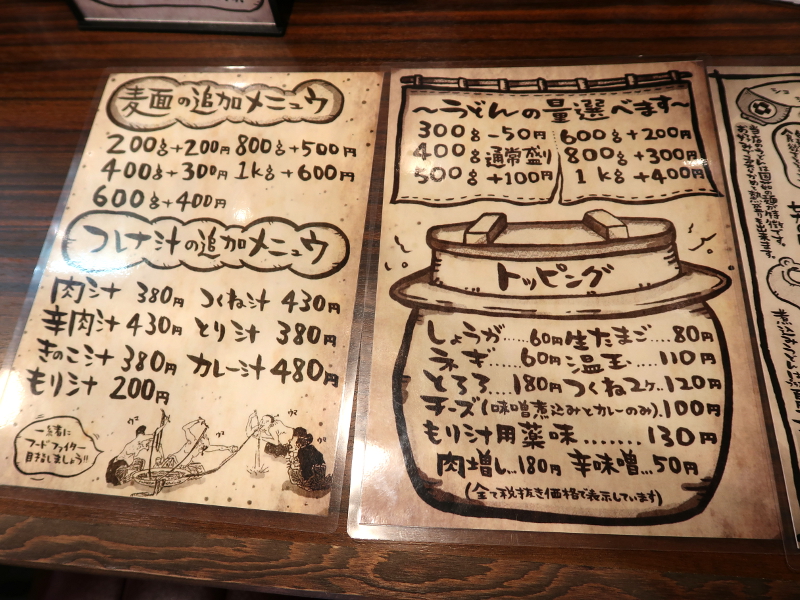 麦面の追加メニュウ
200g+200円 800g+500円
400g+300円 1kg+600円
600g+400円
つけ汁の追加メニュウ
肉汁 380円 つくね汁 430円
辛肉汁 430円 とり汁 380円
きのこ汁 380円 カレー汁 480円
もり汁 200円
一緒に
フードファイター
目指しましょう!!
〜うどんの量選べます〜
300g-50円 600g+200円
400g 通常盛り 800g+300円
500g+100円 1kg+400円
トッピング
しょうが......60円 生たまご....80円
ネギ......60円 温玉....110円
とろろ....180円 つくね2ヶ..120円
チーズ(味噌煮込みとカレーのみ).100円
もり汁用薬味.......130円
肉増し...180円 辛味噌...50円
(全て税抜き価格で表示しています)